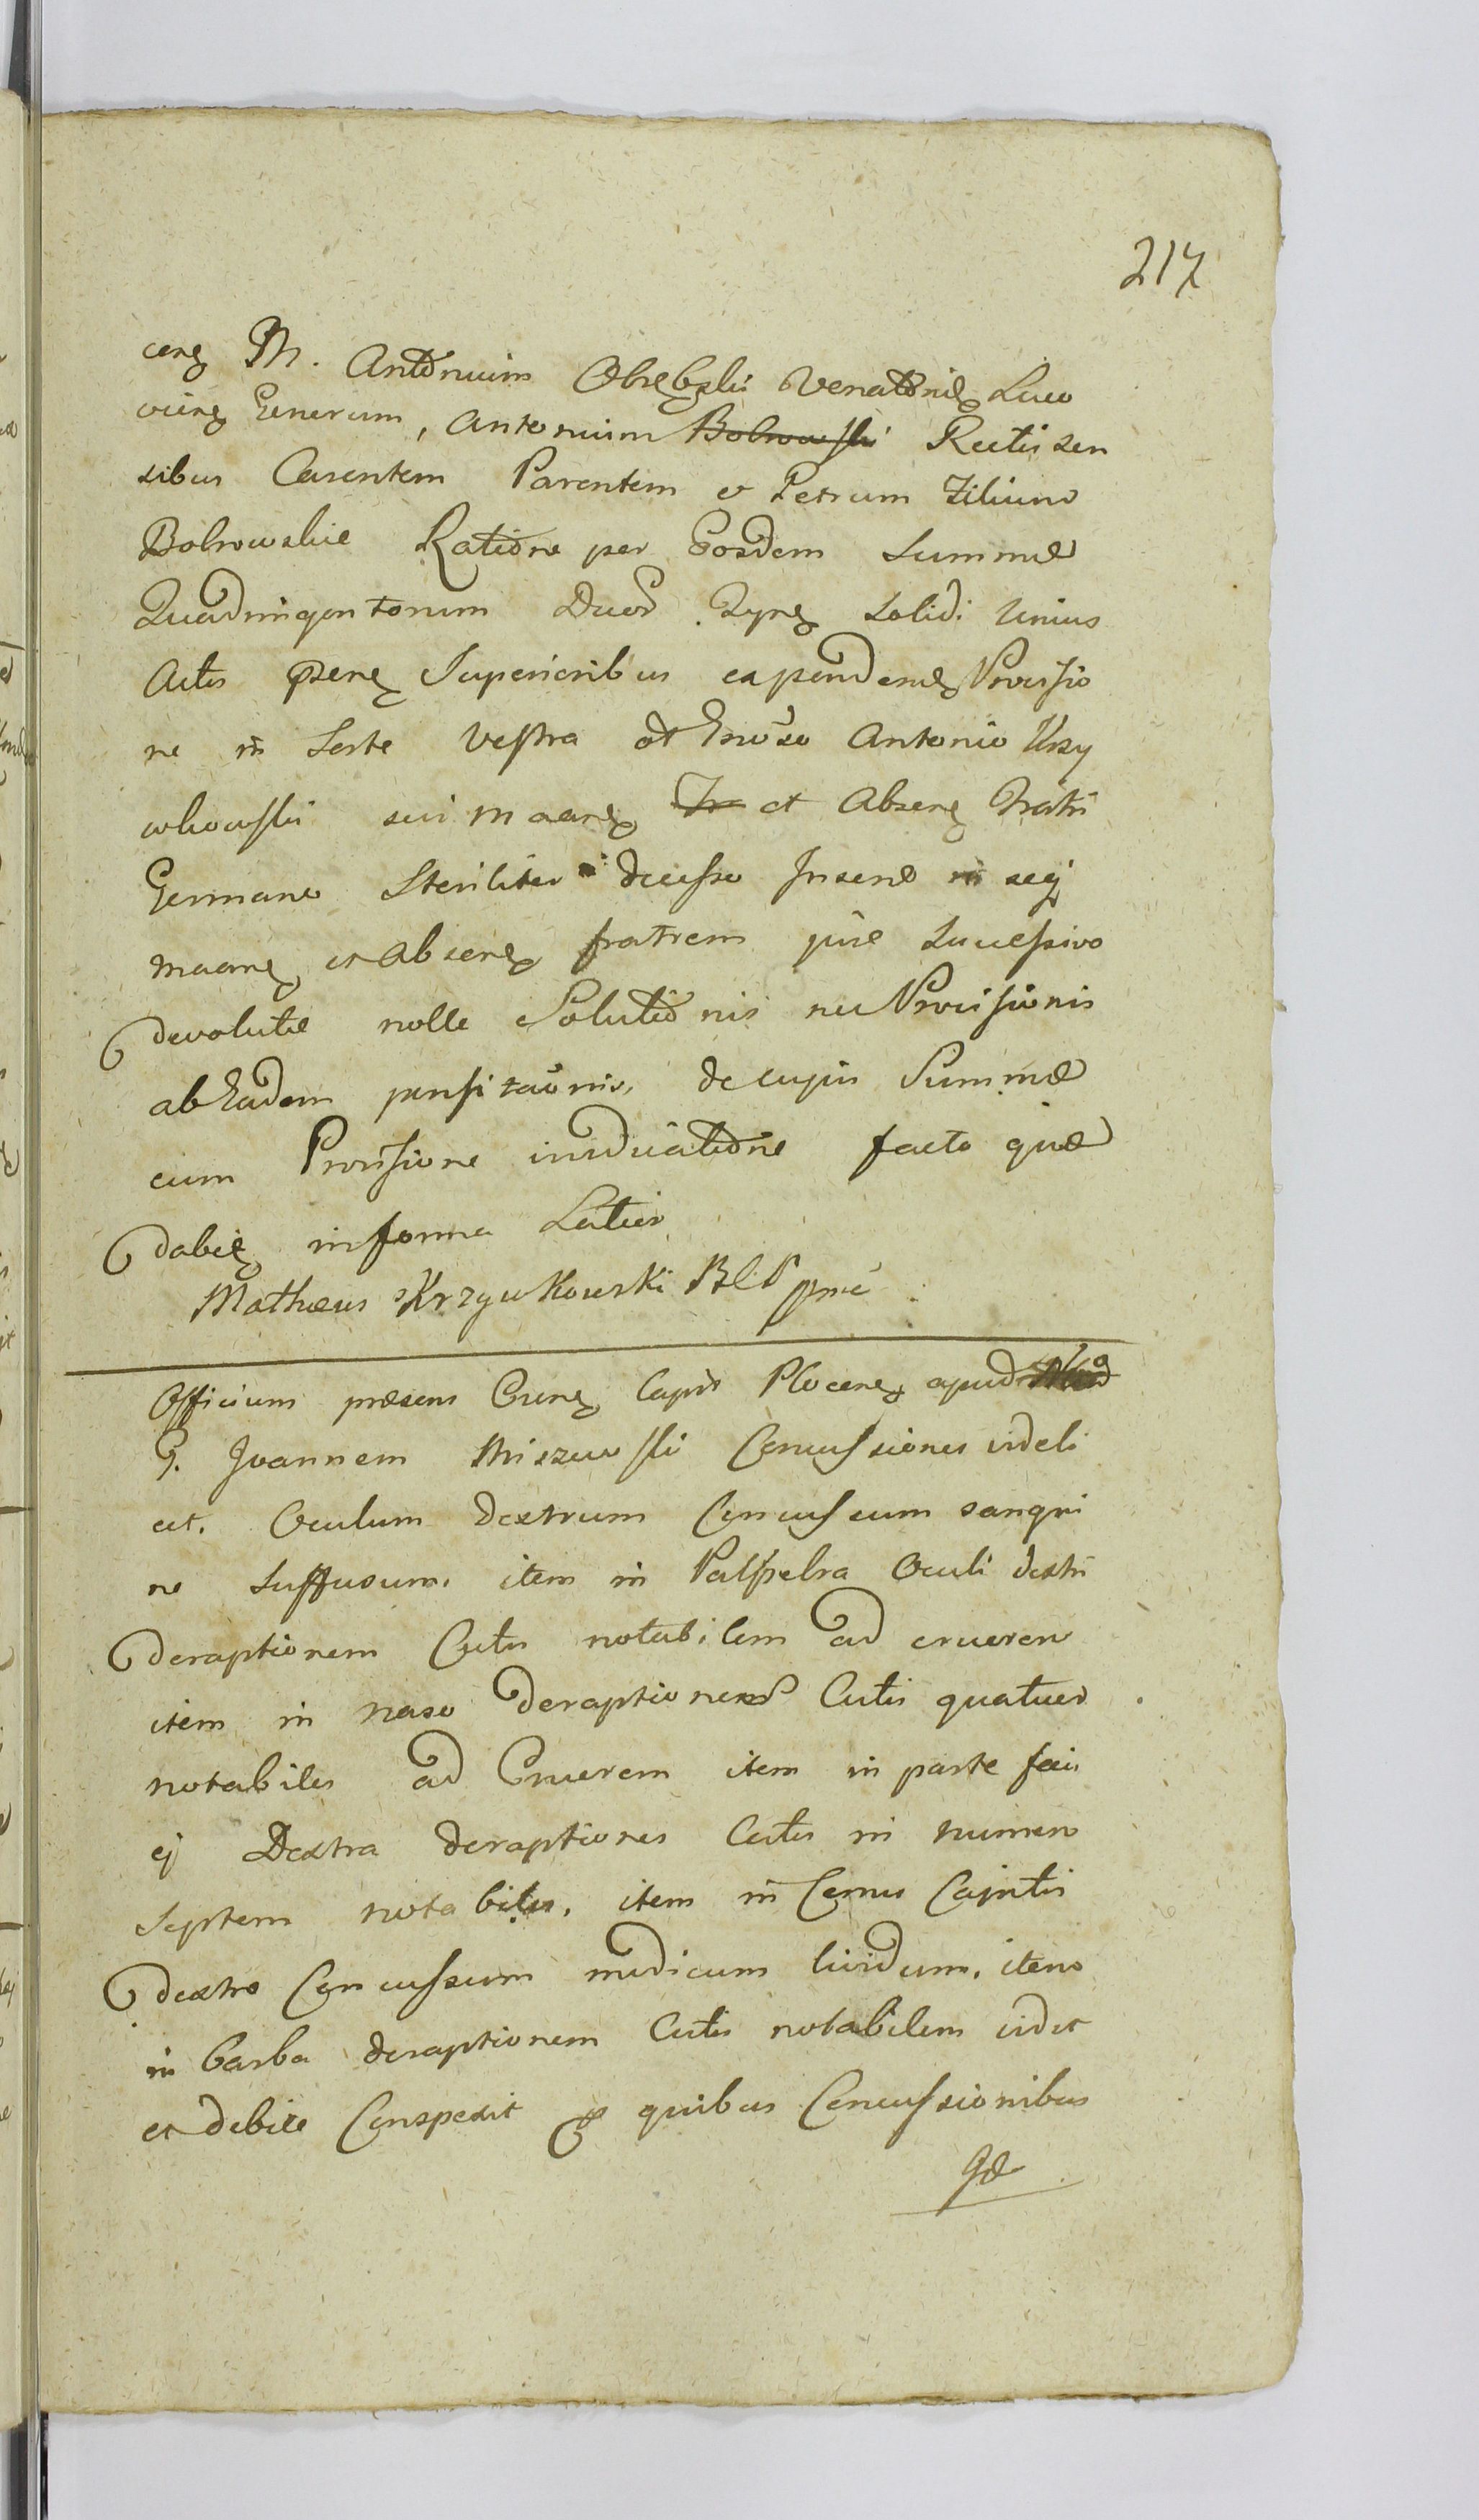 217
cen M. Antonium Obrębski Venatorid Liw
vien Generum, Antonium Bobrowski Rectis sen
sibus Carentem Parentem et Petrum Filium
Bobrowskie Ratione per Eosdem Summæ
Quadringentorum Duor solidi Unius
Actis Superioribus expenden Provisio
ne in Sorte Vestra et Antonio Krzy
wkowski sui maaren et Absen Fratri
Germano Steriliter decesso Insern in seq
maaren et Absen fratrem jure Successivo
devolutæ nolle Solutionis nec Provisionis
ab Eadem pensitationis, de cujus Summæ
cum Provisione inducatione facto quæ
dabit in forma Latior
Matheus Krzywkowski BCP
Officium præsens Capit Plocen apud
G. Joannem Miszewski Concussiones videli
cet. Oculum dextrum Concussum sangvi
ne suffusum, item in Palpebra Oculi dextri
deraptionem Cutis notabilem ad cruorem
item in naso deraptiones Cutis quatuor
notabiles ad Cruorem item in parte faci
ej Dextra deraptiones Cutis in numero
Septem notabiles, item in Cornu Capitis
dextro Concussum modicum lividum, item
in barba deraptionem Cutis notabilem vidit
et debite Conspexit quibus Concussionibus